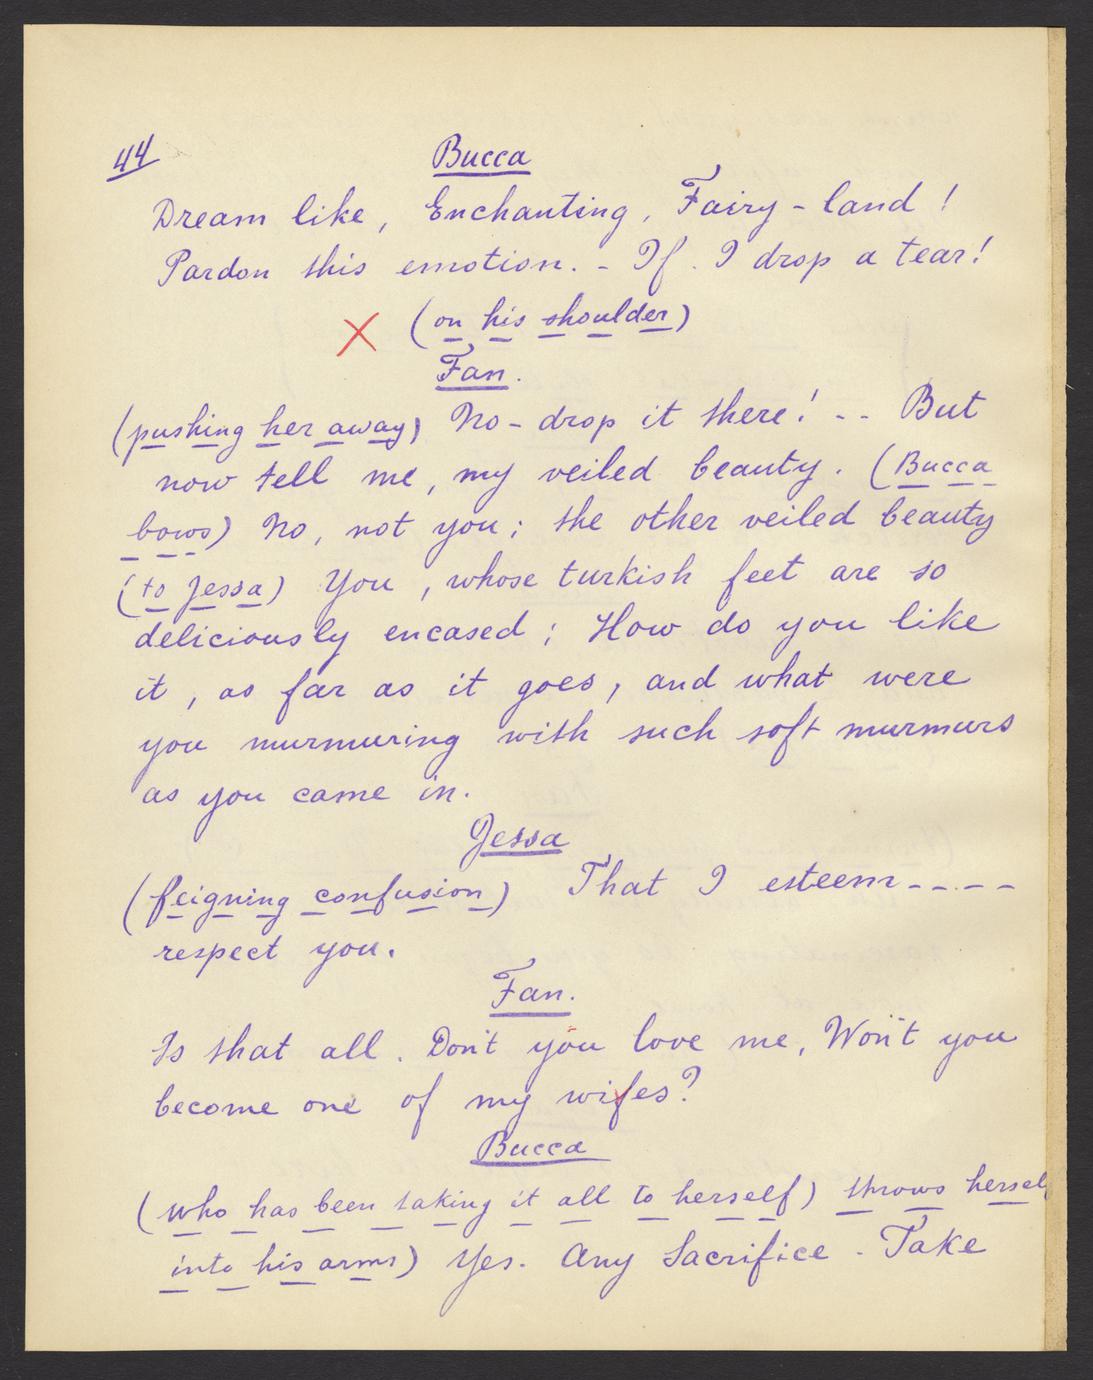 44
Bucca
Dream like, Enchanting, Fairy-land!
Pardon this emotion. - If. I drop a tear!
(on his shoulder)
Fan.
(pushing her away) No - drop it there! -- But
now tell me, my veiled beauty. (Bucca
bows) No, not you; the other veiled beauty
(to Jessa) You, whose turkish feet are so
deliciously encased; How do you like
it, as far as it goes, and what were
you murmuring with such soft murmurs
as you came in.
Jessa
(feigning confusion) That I esteem-----
respect you.
Fan.
Is that all. Don't you love me, Won't you
become one of my wifes?
Bucca
(who has been taking it all to herself) throws hersel
into his arms) Yes. Any Sacrifice - Take